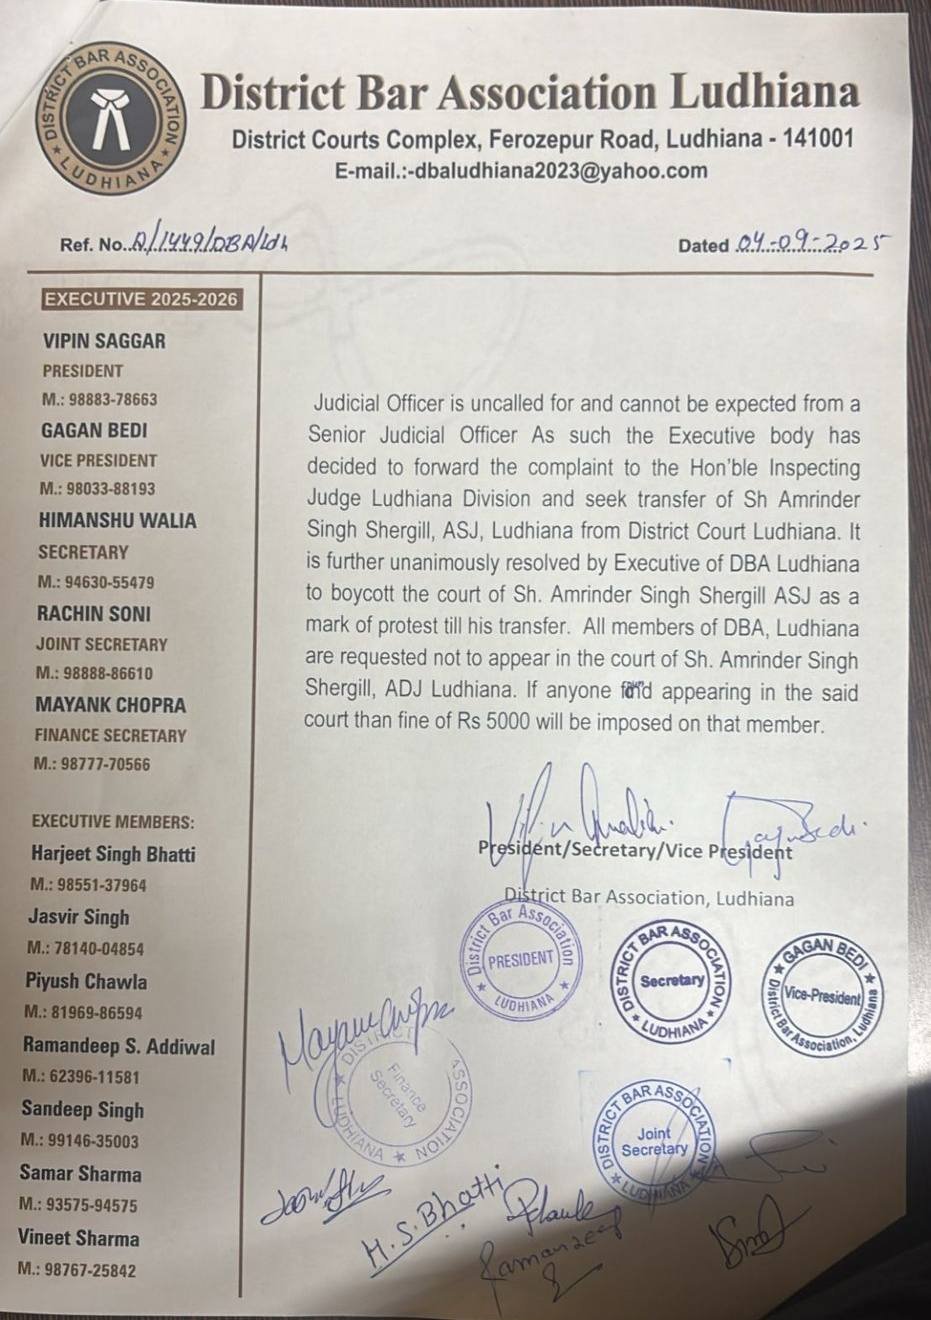 DISTRICT BAR ASSOCIATION
★ LUDHIANA ★
District Bar Association Ludhiana
District Courts Complex, Ferozepur Road, Ludhiana - 141001
E-mail.:-dbaludhiana2023@yahoo.com
Ref. No..A/1449/DBA/Ldh
Dated 04-09-2025
EXECUTIVE 2025-2026
VIPIN SAGGAR
PRESIDENT
M.: 98883-78663
GAGAN BEDI
VICE PRESIDENT
M.: 98033-88193
HIMANSHU WALIA
SECRETARY
M.: 94630-55479
RACHIN SONI
JOINT SECRETARY
M.: 98888-86610
MAYANK CHOPRA
FINANCE SECRETARY
M.: 98777-70566
EXECUTIVE MEMBERS:
Harjeet Singh Bhatti
M.: 98551-37964
Jasvir Singh
M.: 78140-04854
Piyush Chawla
M.: 81969-86594
Ramandeep S. Addiwal
M.: 62396-11581
Sandeep Singh
M.: 99146-35003
Samar Sharma
M.: 93575-94575
Vineet Sharma
M.: 98767-25842
Judicial Officer is uncalled for and cannot be expected from a
Senior Judicial Officer As such the Executive body has
decided to forward the complaint to the Hon'ble Inspecting
Judge Ludhiana Division and seek transfer of Sh Amrinder
Singh Shergill, ASJ, Ludhiana from District Court Ludhiana. It
is further unanimously resolved by Executive of DBA Ludhiana
to boycott the court of Sh. Amrinder Singh Shergill ASJ as a
mark of protest till his transfer. All members of DBA, Ludhiana
are requested not to appear in the court of Sh. Amrinder Singh
Shergill, ADJ Ludhiana. If anyone appearing in the said
court than fine of Rs 5000 will be imposed on that member.
President/Secretary/Vice President
District Bar Association, Ludhiana
District Bar Association
PRESIDENT
★ LUDHIANA ★
DISTRICT BAR ASSOCIATION
Secretary
★ LUDHIANA ★
★ GAGAN BEDI ★
Vice-President
District Bar Association, Ludhiana
DISTRICT ASSOCIATION
Finance
Secretary
★ LUDHIANA ★
DISTRICT BAR ASSOCIATION
Joint
Secretary
★ LUDHIANA ★
H.S. Bhatti